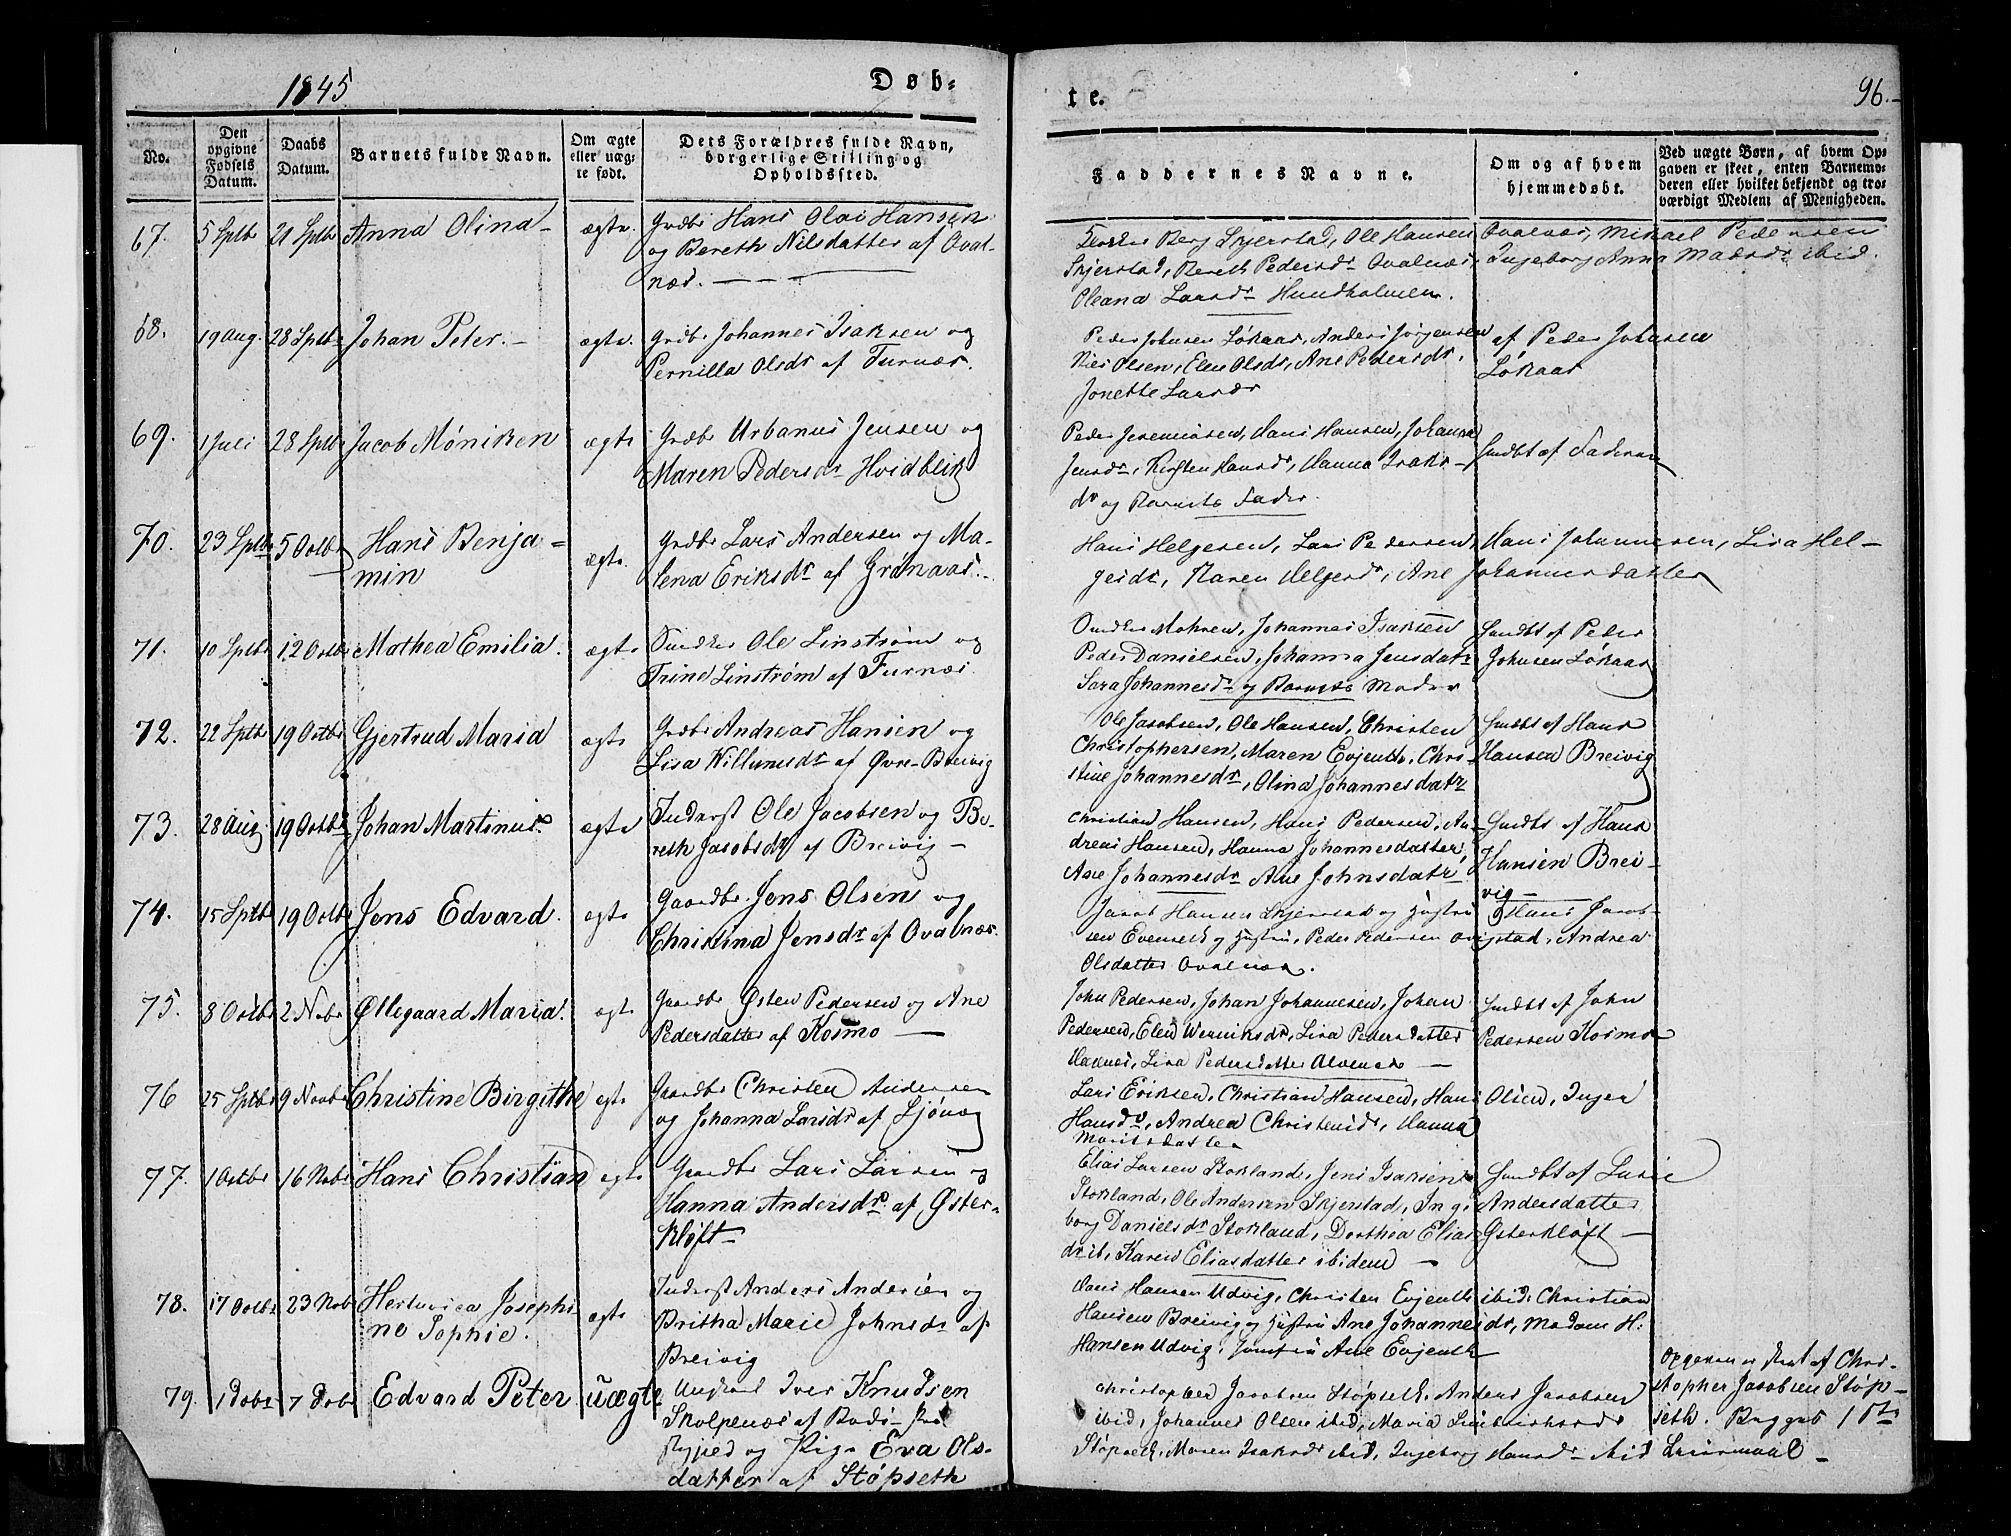 1845
Døb-
te.
96.
No.
Den opgivne Fødsels Datum.
Daabs Datum.
Barnets fulde Navn.
Om ægte eller uægte født.
Dets Forældres fulde Navn, borgerlige Stilling og Opholdssted.
Faddernes Navne.
Om og af hvem hjemmedøbt.
Ved uægte Børn, af hvem Opgaven er skeet, enten Barnemoderen eller hvilket bekjendt og troværdigt Medlem af Menigheden.
67. 5 Sptbr 21 Sptbr Anna Olina ægte Grdbr Hans Olai Hansen
og Bereth Nilsdatter af Oval-
næs.
Berg Skjerstad, Ole Hansen Ovalnæs, Mikael Pedersen
Skjerstad, Bereth Pedersdr Ovalnæs, Ingeborg Anna Madsdr ibid.
Oleana Larsdr Hundholmen.
68. 19 Aug. 28 Sptbr Johan Peter. ægte Grdbr Johannes Isaksen og
Pernilla Olsdr af Furnæs.
Peder Johnsen Løkaas, Anders Jørgensen
Nies Olsen, Elen Olsdr, Ane Pedersdr,
Jonette Larsdr
af Peder Johnsen
Løkaas
69. 1 Juli 28 Sptbr Jacob Møniken ægte Grdbr Urbanus Jensen og
Maren Pedersdr Hvidblik
Peder Jeremiasen, Hans Hansen, Johanna
Jensdr, Kirsten Hansdr, Hanna Isaks-
dr og Barnets Fader.
Hmdbt af Faderen
70. 23 Sptbr 5 Octbr Hans Benja-
min
ægte Grdbr Lars Andersen og Ma-
lena Eriksdr af Grønaas.
Hans Helgesen, Lars Pedersen, Hans Johannesen, Lisa Hel-
gesdr, Maren Helgesdr, Ane Johannesdatter
71. 10 Sptbr 12 Octbr Mathea Emilia. ægte Snedker Ole Linstrøm og
Trine Linstrøm af Furnæs
Johannes Isaksen
Peder Danielsen, Johanna Jensdatr
Sara Johannesdr og Barnets Moder
Hmdbt af Peder
Johnsen Løkaas
72. 22 Sptbr 19 Octbr Gjertrud Maria ægte Grdbr Andreas Hansen og
Lisa Willumsdr af Øvre Breivig
Ole Jacobsen, Ole Hansen, Christen
Christophersen, Maren Evjenth, Chri-
stine Johannesdr, Olina Johannesdatr
Hmdbt af Hans
Hansen Breivig
73. 28 Aug 19 Octbr Johan Martinus. ægte Inderst Ole Jacobsen og Be-
reth Jacobsdr af Breivig
Christian Hansen, Hans Pedersen, An-
dreas Hansen, Hanna Johannesdatter,
Ane Johannesdr Ane Johnsdatr
Hmdbt af Hans
Hansen Brei-
vig
74. 15 Sptbr 19 Octbr Jens Edvard. ægte Gaardbr. Jens Olsen og
Christina Jensdr af Ovalnæs.
Jacob Hansen Skjerstad og Hustru, Hans Jacob-
sen Evenseth og Hustru, Peder Pedersen, Andrea
Olsdatter Ovalnæs.
75. 8 Octbr 2 Nobr Øllegaard Maria. ægte Gaardbr Østen Pedersen og Ane
Pedersdatter af Kosmo
John Pedersen, Johan Johannesen, Johan
Pedersen, Elen Werniksdr, Lisa Pedersdatter
Lisa Pedersdatter Alvenes
Hmdbt af John
Pedersen Kosmo
76 25 Sptbr 9 Novbr Christine Birgithe ægte Gaardbr Christen Andersen
og Johanna Larsdr af Ljønæs
Lars Eriksen, Christian Hansen, Hans Olsen, Inger
Hansdr, Andrea Christensdr, Hanna
Moritsdatter
77. 1 Octbr 16 Nobr Hans Christian ægte Gaardbr Lars Larsen og
Hanna Andersdr af Øster-
kløft
Elias Larsen Stokland, Jens Isaksen
Stokland, Ole Andersen Skjerstad, Inge-
borg Danielsdr Stokland, Dorthea Elias-
dr ib, Karen Eliasdatter ibidem
Hmdbt af Lusie
Andersdatter
Østerkløft
78. 17 Octbr 23 Nobr Hertvica Josephi-
ne Sophie.
ægte Inderst Anders Andersen og
Britha Marie Johnsdr af
Breivig
Hans Hansen Udvig, Christen Evjenth ibid, Christian
Hansen Breivig og Hustru Ane Johannesdr, Madam H:
Hansen Udvig, Jomfru Ane Evjenth
79. 1 Dobr 7 Dobr Edvard Peter uægte Ungkarl Iver Knudsen
Skolpenæs af Bodø
og Pige Eva Ols-
datter af Støpseth
Christopher Jacobsen Støpseth, Anders Jacobsen
ibid, Johannes Olsen ibid, Maria
Støpseth, Maren Isaksdr ibid, Ingeborg Hansdr ibid
Opgaven er skeet af Chri-
stopher Jacobsen Støp-
seth. Begges 1ste
Leiermaal